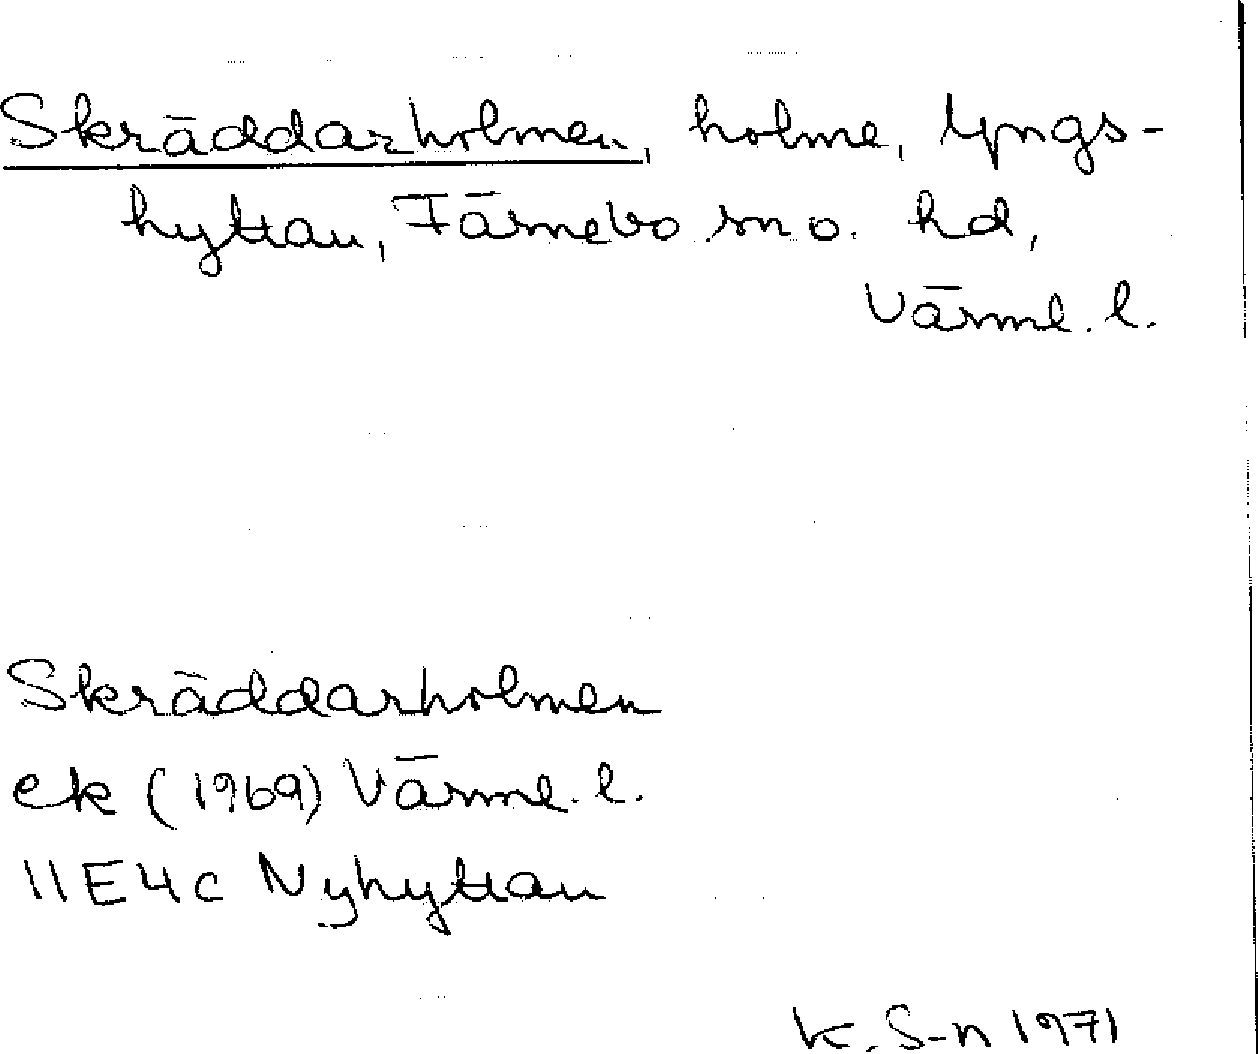 Skräddarholmen, holme, Lyngs-
hyttan, Färnebo sn o. hd,
Värml. l.
Skräddarholmen
ek (1969) Värml. l.
11E4c Nyhyttan
K. S-n 1971